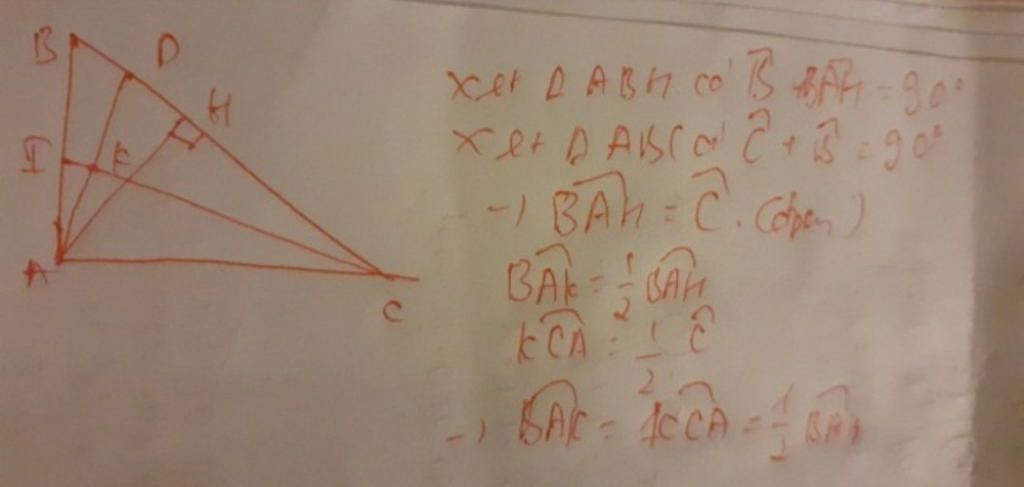 B D
H
I K
A
C
Xét Δ ABH có B̂ + BAH = 90°
Xét Δ ABC có Ĉ + B̂ = 90°
→ BAH = Ĉ. (đpcm)
BAK = 1/2 BAH
KCA = 1/2 Ĉ
→ BAK = KCA = 1/2 BAH